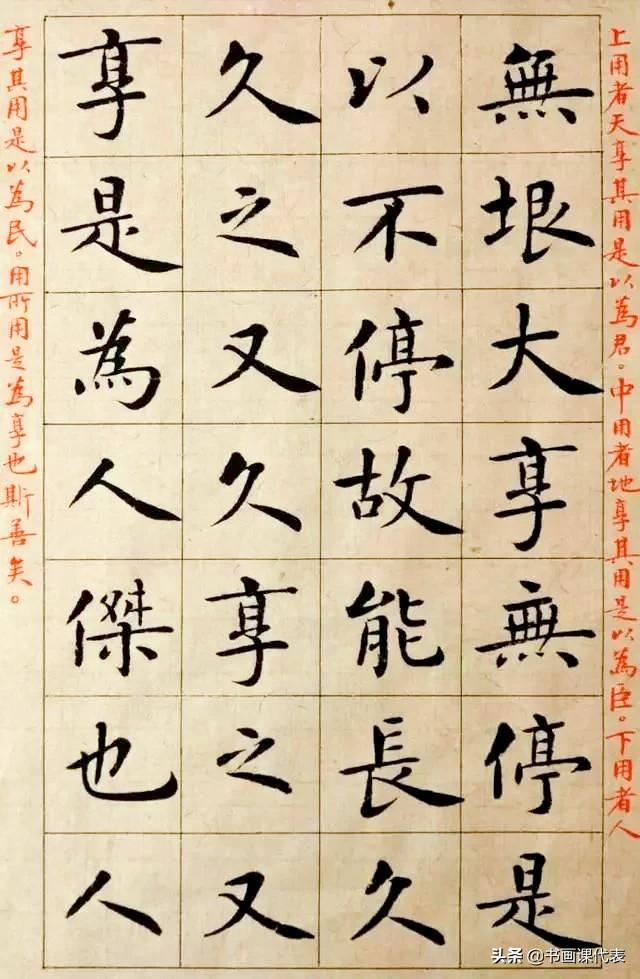 上用者天享其用是以為君。中用者地享其用是以為臣。下用者人
無垠大享無停是
以不停故能長久
久之又久享之又
享是為人傑也人
享其用是以為民。用所用是為享也斯善矣。
头条 @书画课代表